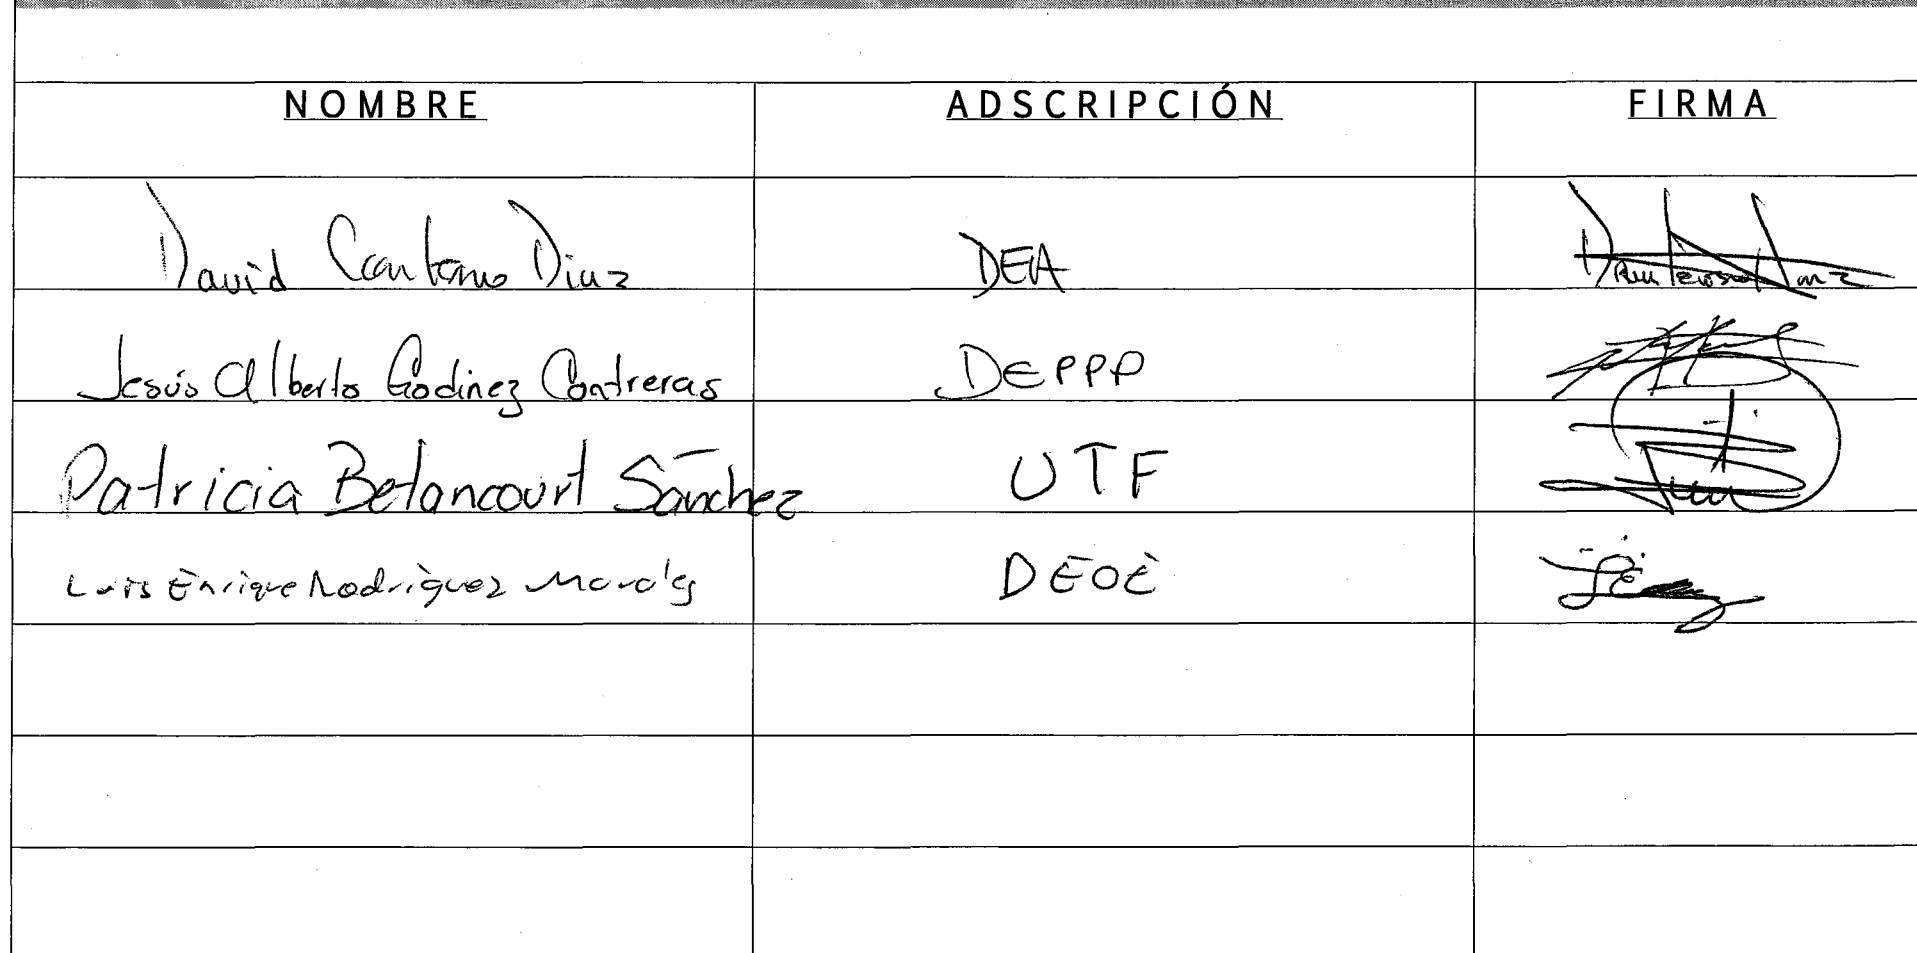 NOMBRE ADSCRIPCIÓN FIRMA
David Diaz DEA
Jesús Alberto Godinez Contreras DEPPP
Patricia Betancourt Sánchez UTF
Luis Enrique Rodríguez Morales DEOE